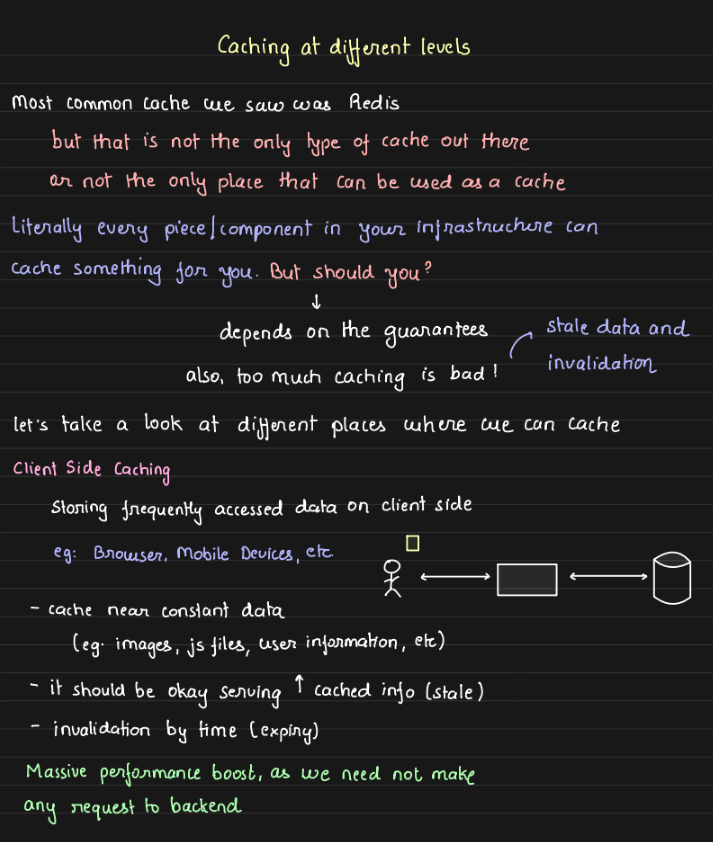 Caching at different levels
Most common cache we saw was Redis
but that is not the only type of cache out there
or not the only place that can be used as a cache
Literally every piece/component in your infrastructure can
cache something for you. But should you?
↓
depends on the guarantees
also, too much caching is bad!
stale data and
invalidation
let's take a look at different places where we can cache
Client Side Caching
Storing frequently accessed data on client side
eg: Browser, Mobile Devices, etc
- cache near constant data
(eg. images, js files, user information, etc)
- it should be okay serving ↑ cached info (stale)
- invalidation by time (expiry)
Massive performance boost, as we need not make
any request to backend